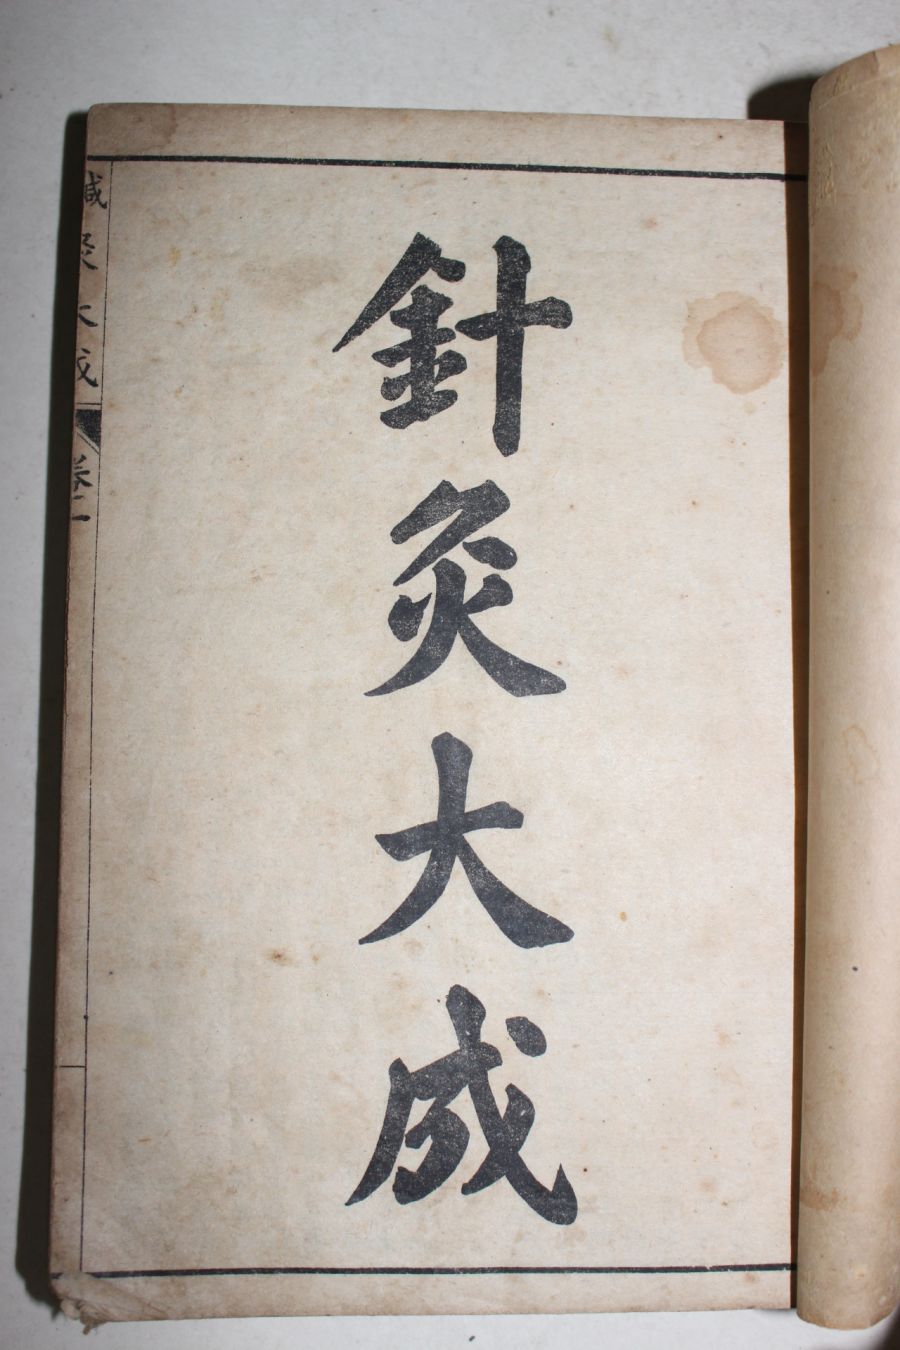 針灸大成
鍼灸大成 卷一